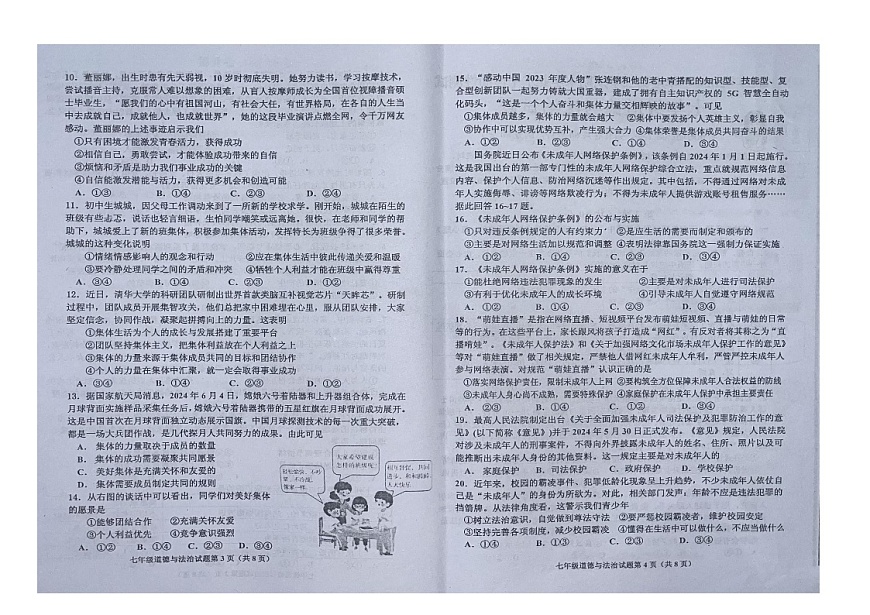 10. 董丽娜，出生时患有先天弱视，10 岁时彻底失明。她努力读书，学习按摩技术，
尝试播音主持，克服常人难以想象的困难，从盲人按摩师成长为全国首位视障播音硕
士毕业生，“愿我们的心中有祖国河山，有社会大任，有世界格局，在各自的人生当
中去成就自己，成就他人，也成就世界”，她的这段毕业演讲点燃全网，令千万网友
感动。董丽娜的上述事迹启示我们
①只有困境才能激发青春活力，获得成功
②相信自己，勇敢尝试，才能体验成功带来的自信
③烦恼和矛盾是助力我们事业成功的关键
④自信能激发潜能与活力，获得更多机会和创造可能
A. ①③ B. ①④ C. ②③ D. ②④
11. 初中生城城，因父母工作调动来到了一所新的学校求学。刚开始，城城在陌生的
班级有些忐忑，说话也轻言细语，生怕同学嘲笑或远离她。很快，在老师和同学的帮
助下，城城爱上了新的班集体，积极参加集体活动，发挥特长为班级争得了很多荣誉。
城城的这种变化说明
①情绪情感影响人的观念和行动 ②应在集体生活中彼此传递关爱和温暖
③要冷静处理同学之间的矛盾和冲突 ④牺牲个人利益才能在班级中赢得尊重
A. ③④ B. ①④ C. ②③ D. ①②
12. 近日，清华大学的科研团队研制出世界首款类脑互补视觉芯片“天眸芯”。研制
过程中，团队成员开展集智攻关，他们总把家中困难埋在心里，服从团队安排，大家
坚定信念，协同作战，凝聚起拼搏向上的力量。这表明
①集体生活为个人的成长与发展搭建了重要平台
②团队坚持集体主义，把集体利益放在个人利益之上
③集体的力量来源于集体成员共同的目标和团结协作
④个人的力量在集体中汇聚，就一定会取得事业成功
A. ③④ B. ①④ C. ②③ D. ①②
13. 据国家航天局消息，2024 年 6 月 4 日，嫦娥六号着陆器和上升器组合体，完成在
月球背面实施样品采集任务后，嫦娥六号着陆器携带的五星红旗在月球背面成功展开。
这是中国首次在月球背面独立动态展示国旗。中国月球探测技术的每一次重大突破，
都是一场大兵团作战，是几代探月人共同努力的成果。由此可见
A. 集体的力量取决于成员的数量
B. 集体的成功需要凝聚共同愿景
C. 美好集体是充满关怀和友爱的
D. 集体需要成员制定共同的规则
14. 从右图的谈话中可以看出，同学们对美好集体
的愿景是
①能够团结合作 ②充满关怀友爱
③个人利益优先 ④竞争意识强烈
A. ①② B. ①④ C. ②③ D. ③④
大家希望建成
怎样的班级呢？
七年级道德与法治试题第 3 页（共 8 页）
15. “感动中国 2023 年度人物”张连钢和他的老中青搭配的知识型、技能型、复
合型创新团队一起努力铸就大国重器，建成了拥有自主知识产权的 5G 智慧全自动
化码头，“这是一个个人奋斗和集体力量交相辉映的故事”。可见
①集体成员越多，集体的力量就会越大 ②集体中要发扬个人英雄主义，彰显自我
③协作中可以实现优势互补，产生强大合力 ④集体荣誉是集体成员共同奋斗的结果
A. ①② B. ②③ C. ①④ D. ③④
国务院近日公布《未成年人网络保护条例》，该条例自 2024 年 1 月 1 日起施行。
这是我国出台的第一部专门性的未成年人网络保护综合立法，重点就规范网络信息
内容、保护个人信息、防治网络沉迷等作出规定，其中包括，不得通过网络对未成
年人实施侮辱、诽谤等网络欺凌行为；不得为未成年人提供游戏账号租售服务……
据此回答 16~17 题。
16. 《未成年人网络保护条例》的公布与实施
①只对违反条例规定的人有约束力 ②是应生活的需要而制定和颁布的
③主要是对网络生活加以规范和调整 ④表明法律靠国务院这一强制力保证实施
A. ①② B. ①④ C. ②③ D. ③④
17. 《未成年人网络保护条例》实施的意义在于
①能杜绝网络违法犯罪现象的发生 ②主要是对未成年人进行司法保护
③有利于优化未成年人的成长环境 ④引导未成年人自觉遵守网络规范
A. ①② B. ①④ C. ②③ D. ③④
18. “萌娃直播”是指在网络直播、短视频平台发布萌娃短视频、直播与萌娃的日常
等的行为。在这些平台上，家长跟风将孩子打造成“网红”。有反对者将其称之为“直
播啃娃”。《未成年人保护法》和《关于加强网络文化市场未成年人保护工作的意见》
等对“萌娃直播”做了相关规定，严禁他人借网红未成年人牟利，严管严控未成年人
参与网络表演。对规范“萌娃直播”认识正确的是
①落实网络保护责任，限制未成年人上网 ②要构筑全方位保障未成年人合法权益的防线
③未成年人身心尚不成熟，需要特殊保护 ④家庭保护在未成年人保护中承担主要责任
A. ②③ B. ①④ C. ①② D. ③④
19. 最高人民法院制定出台《关于全面加强未成年人司法保护及犯罪防治工作的意
见》(以下简称《意见》)并于 2024 年 5 月 30 日正式发布。《意见》规定，人民法院
对涉及未成年人的刑事案件，不得向外界披露未成年人的姓名、住所、照片以及可
能推断出未成年人身份的其他资料。这一规定主要是对未成年人的
A. 家庭保护 B. 司法保护 C. 政府保护 D. 学校保护
20. 近年来，校园的霸凌事件、犯罪低龄化现象呈上升趋势，不少未成年人依仗自
己是“未成年人”的身份为所欲为。对此，相关部门发声：年龄不应是违法犯罪的
挡箭牌。从法律角度看，这警示我们青少年
①树立法治意识，自觉做到尊法守法 ②要严惩校园霸凌者，维护校园安定
③坚持完善各项制度，减少校园霸凌 ④懂得在生活中可以做什么，不应当做什么
A. ①④ B. ①③ C. ②③ D. ③④
七年级道德与法治试题第 4 页（共 8 页）